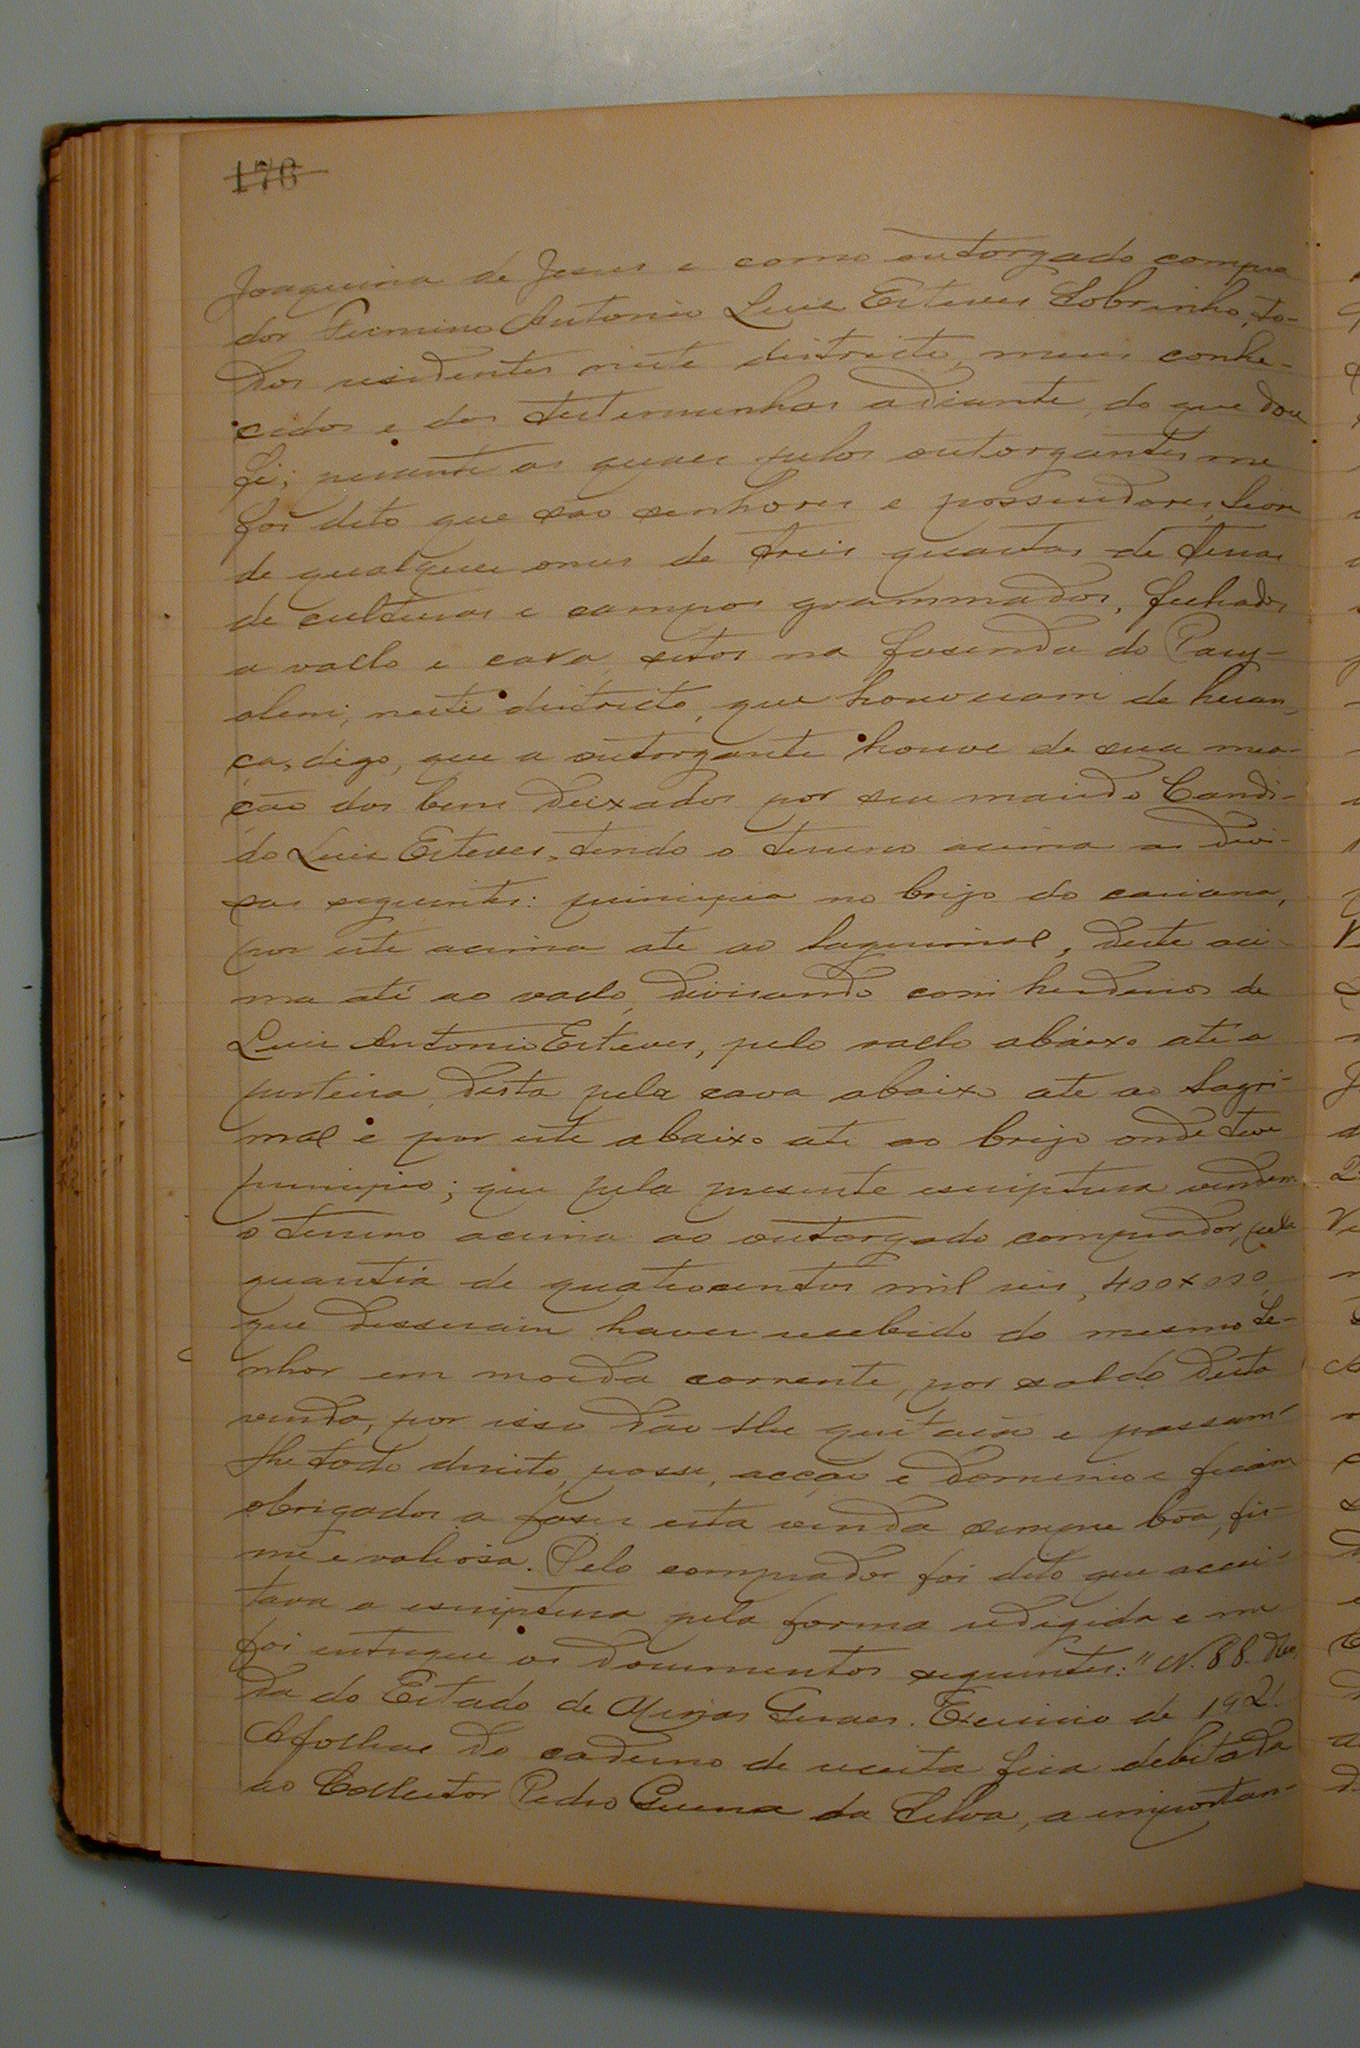 176
Joaquina de Jesus e como outorgado compra
dor Firmino Antonio Luis Esteves Sobrinho, to-
dos residentes neste districto, meus conhe-
cidos e das testemunhas adiante, do que dou
fé; perante as quaes pelos outorgantes me
foi dito que são senhores e possuidores, livre
de qualquer onus de tres quartas de terras
de culturas e campos grammados, fechados
a vallo e cava, sitos na fasenda do
neste districto, que houveram de heran-
ça, digo, que a outorgante houve de sua mea-
ção dos bens deixados por seu marido Candi-
do Luis Esteves, tendo o terreno acima as divi-
sas seguintes: principia no brejo do
por este acima ate ao lagrimal, deste aci-
ma até ao vallo, divisando com herdeiros de
Luis Antonio Esteves, pelo vallo abaixo até a
porteira, desta pela cava abaixo ate ao lagri-
mal e por este abaixo ate ao brejo onde teve
principio; que pela presente escriptura vendem
o terreno acima ao outorgado comprador, pela
quantia de quatrocentos mil reis, 400x000,
que disseram haver recebido do mesmo Se-
nhor em moeda corrente, por saldo desta
venda, por isso dão lhe quitação e passam-
lhe todo direito, posse, acção e dominio e ficam
obrigados a faser esta venda sempre bôa, fir-
me e valiosa. Pelo comprador foi dito que accei-
tava a escriptura pela forma redigida e me
foi entregue os documentos seguintes: "N. 88.
da do Estado de Minas Geraes. Exercicio de 192
A folhas do caderno de receita fica debitada
ao Collector Pedro Guerra da Silva, a importan-